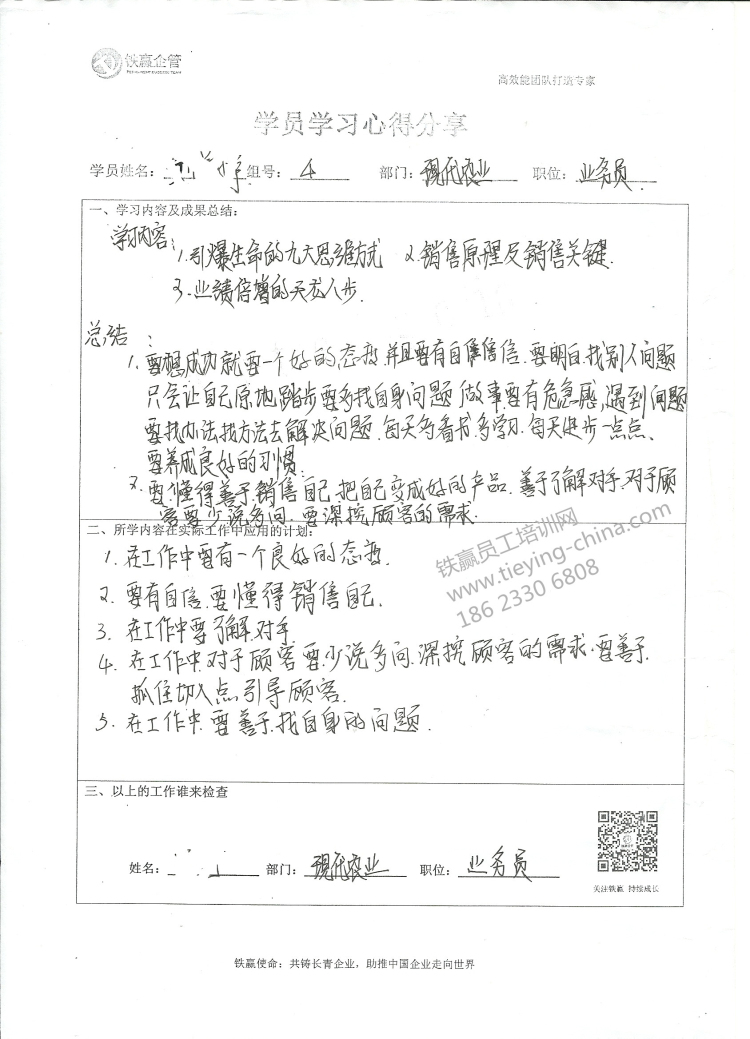 铁赢企管
高效能团队打造专家
学员学习心得分享
学员姓名： 组号：4 部门：现代农业 职位：业务员
一、学习内容及成果总结：
学习内容：
1.引爆生命的九大思维方式 2.销售原理及销售关键.
3.业绩倍增的天龙八步.
总结：
1.要想成功就要一个好的态度.并且要有自信.要明白.找别人问题
只会让自己原地踏步要多找自身问题.做事要有危急感.遇到问题
要找办法找方法去解决问题.每天多看书.多学习.每天进步一点点.
要养成良好的习惯.
2.要懂得善于销售自己.把自己变成好的产品.善于了解对手.对于顾
客要少说多问.要深挖顾客的需求.
二、所学内容在实际工作中应用的计划：
1.在工作中要有一个良好的态度.
2.要有自信.要懂得销售自己.
3.在工作中要了解对手.
4.在工作中.对于顾客要少说多问.深挖顾客的需求.要善于
抓住切入点引导顾客.
5.在工作中.要善于找自身的问题.
铁赢员工培训网
www.tieying-china.com
186 2330 6808
三、以上的工作谁来检查
姓名： 部门：现代农业 职位：业务员
关注铁赢 持续成长
铁赢使命：共铸长青企业，助推中国企业走向世界